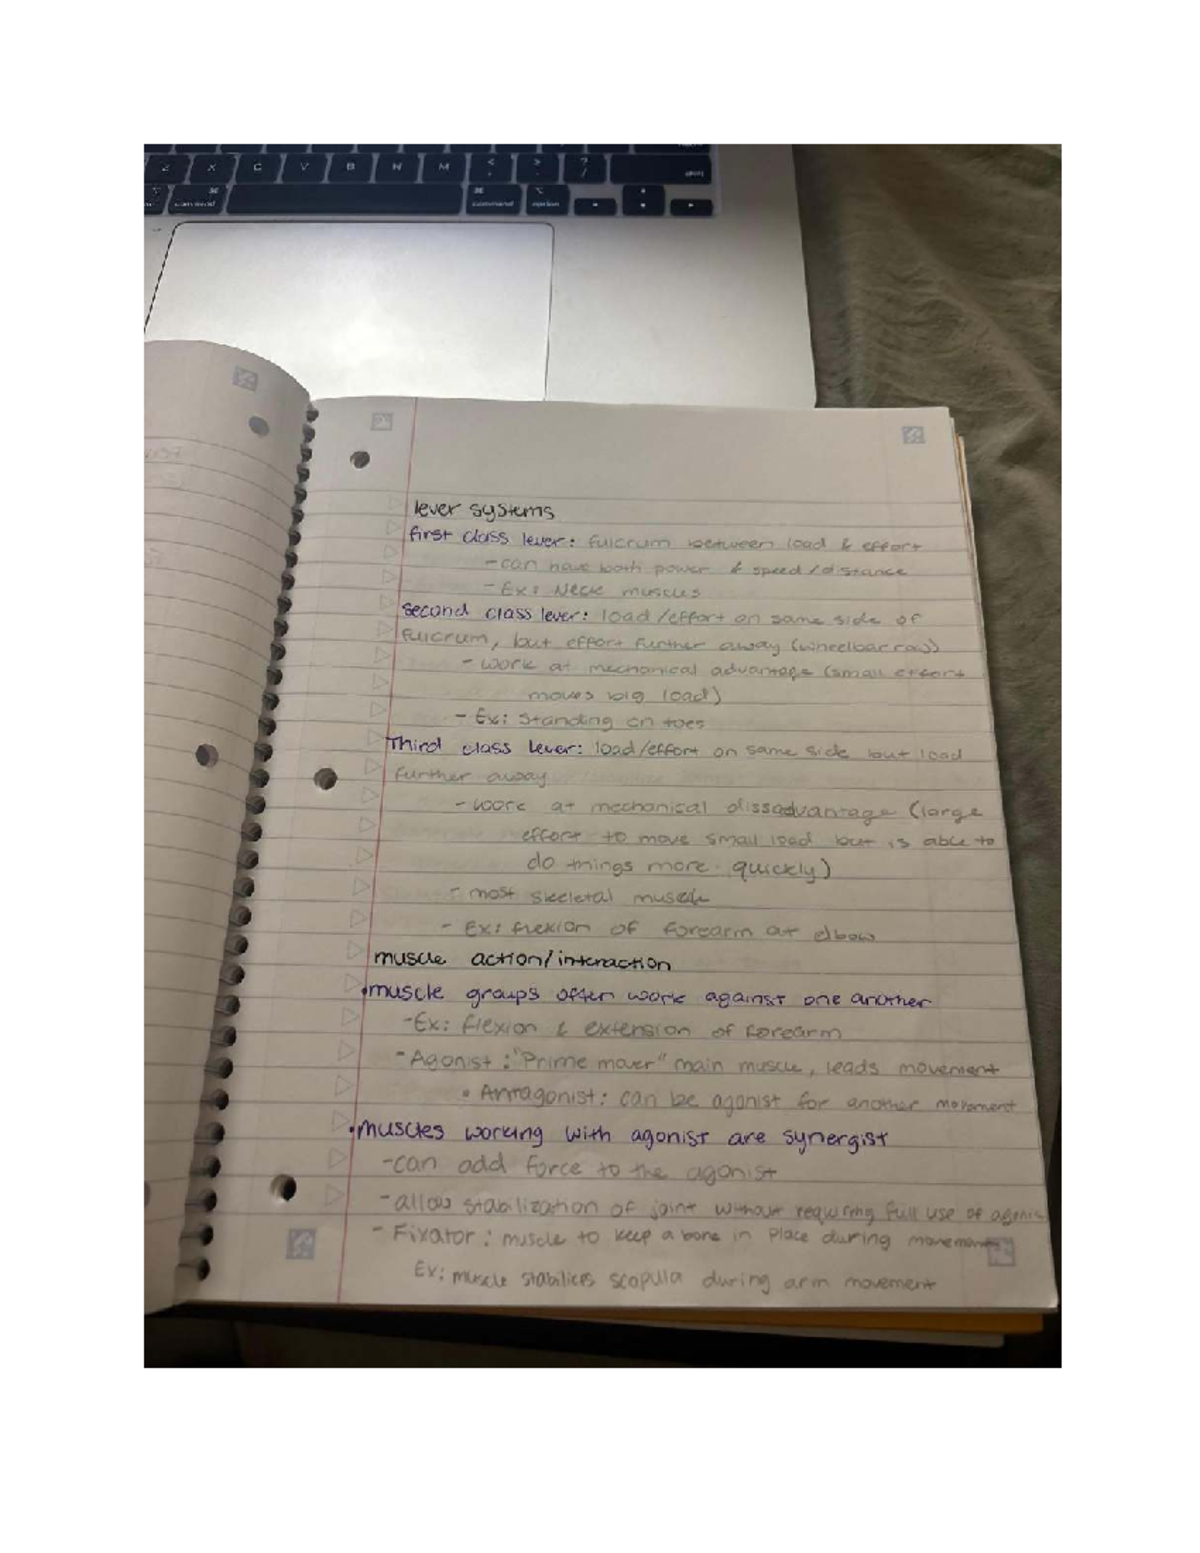 Z X C V B N M < , > . ? /
⌘ command ⌘ command ⌥ option
lever systems
first class lever: fulcrum between load & effort
- can have both power & speed/distance
- Ex: Neck muscles
second class lever: load/effort on same side of
fulcrum, but effort further away (wheelbarrow)
- work at mechanical advantage (small effort
moves big load)
- Ex: standing on toes
Third class lever: load/effort on same side but load
further away
- work at mechanical dissadvantage (large
effort to move small load but is able to
do things more quickly)
- most skeletal muscle
- Ex: flexion of forearm at elbow
muscle action/interaction
• muscle groups often work against one another
- Ex: flexion & extension of forearm
- Agonist: "Prime mover" main muscle, leads movement
• Antagonist: can be agonist for another movement
• muscles working with agonist are synergist
- can add force to the agonist
- allow stabilization of joint without requiring full use of agonist
- Fixator: muscle to keep a bone in place during movement
Ex: muscle stabilizes scapula during arm movement